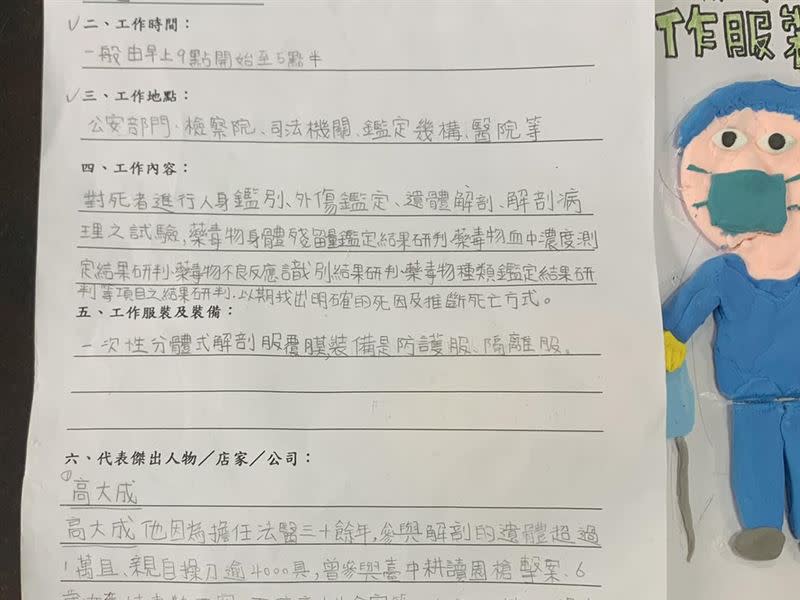 ✓二、工作時間：
一般由早上9點開始至5點半
✓三、工作地點：
公安部門、檢察院、司法機關、鑑定幾構、醫院等
四、工作內容：
對死者進行人身鑑別、外傷鑑定、遺體解剖、解剖病
理之試驗，藥毒物身體殘留量鑑定結果研判、藥毒物血中濃度測
定結果研判、藥毒物不良反應識別結果研判、藥毒物種類鑑定結果研
判等項目之結果研判，以期找出明確的死因及推斷死亡方式。
五、工作服裝及裝備：
一次性分體式解剖服覆膜，裝備是防護服、隔離服。
六、代表傑出人物／店家／公司：
①高大成
高大成他因為擔任法醫三十餘年，參與解剖的遺體超過
1萬且、親自操刀逾4000具，曾參與臺中耕讀園槍擊案、6
工作服裝